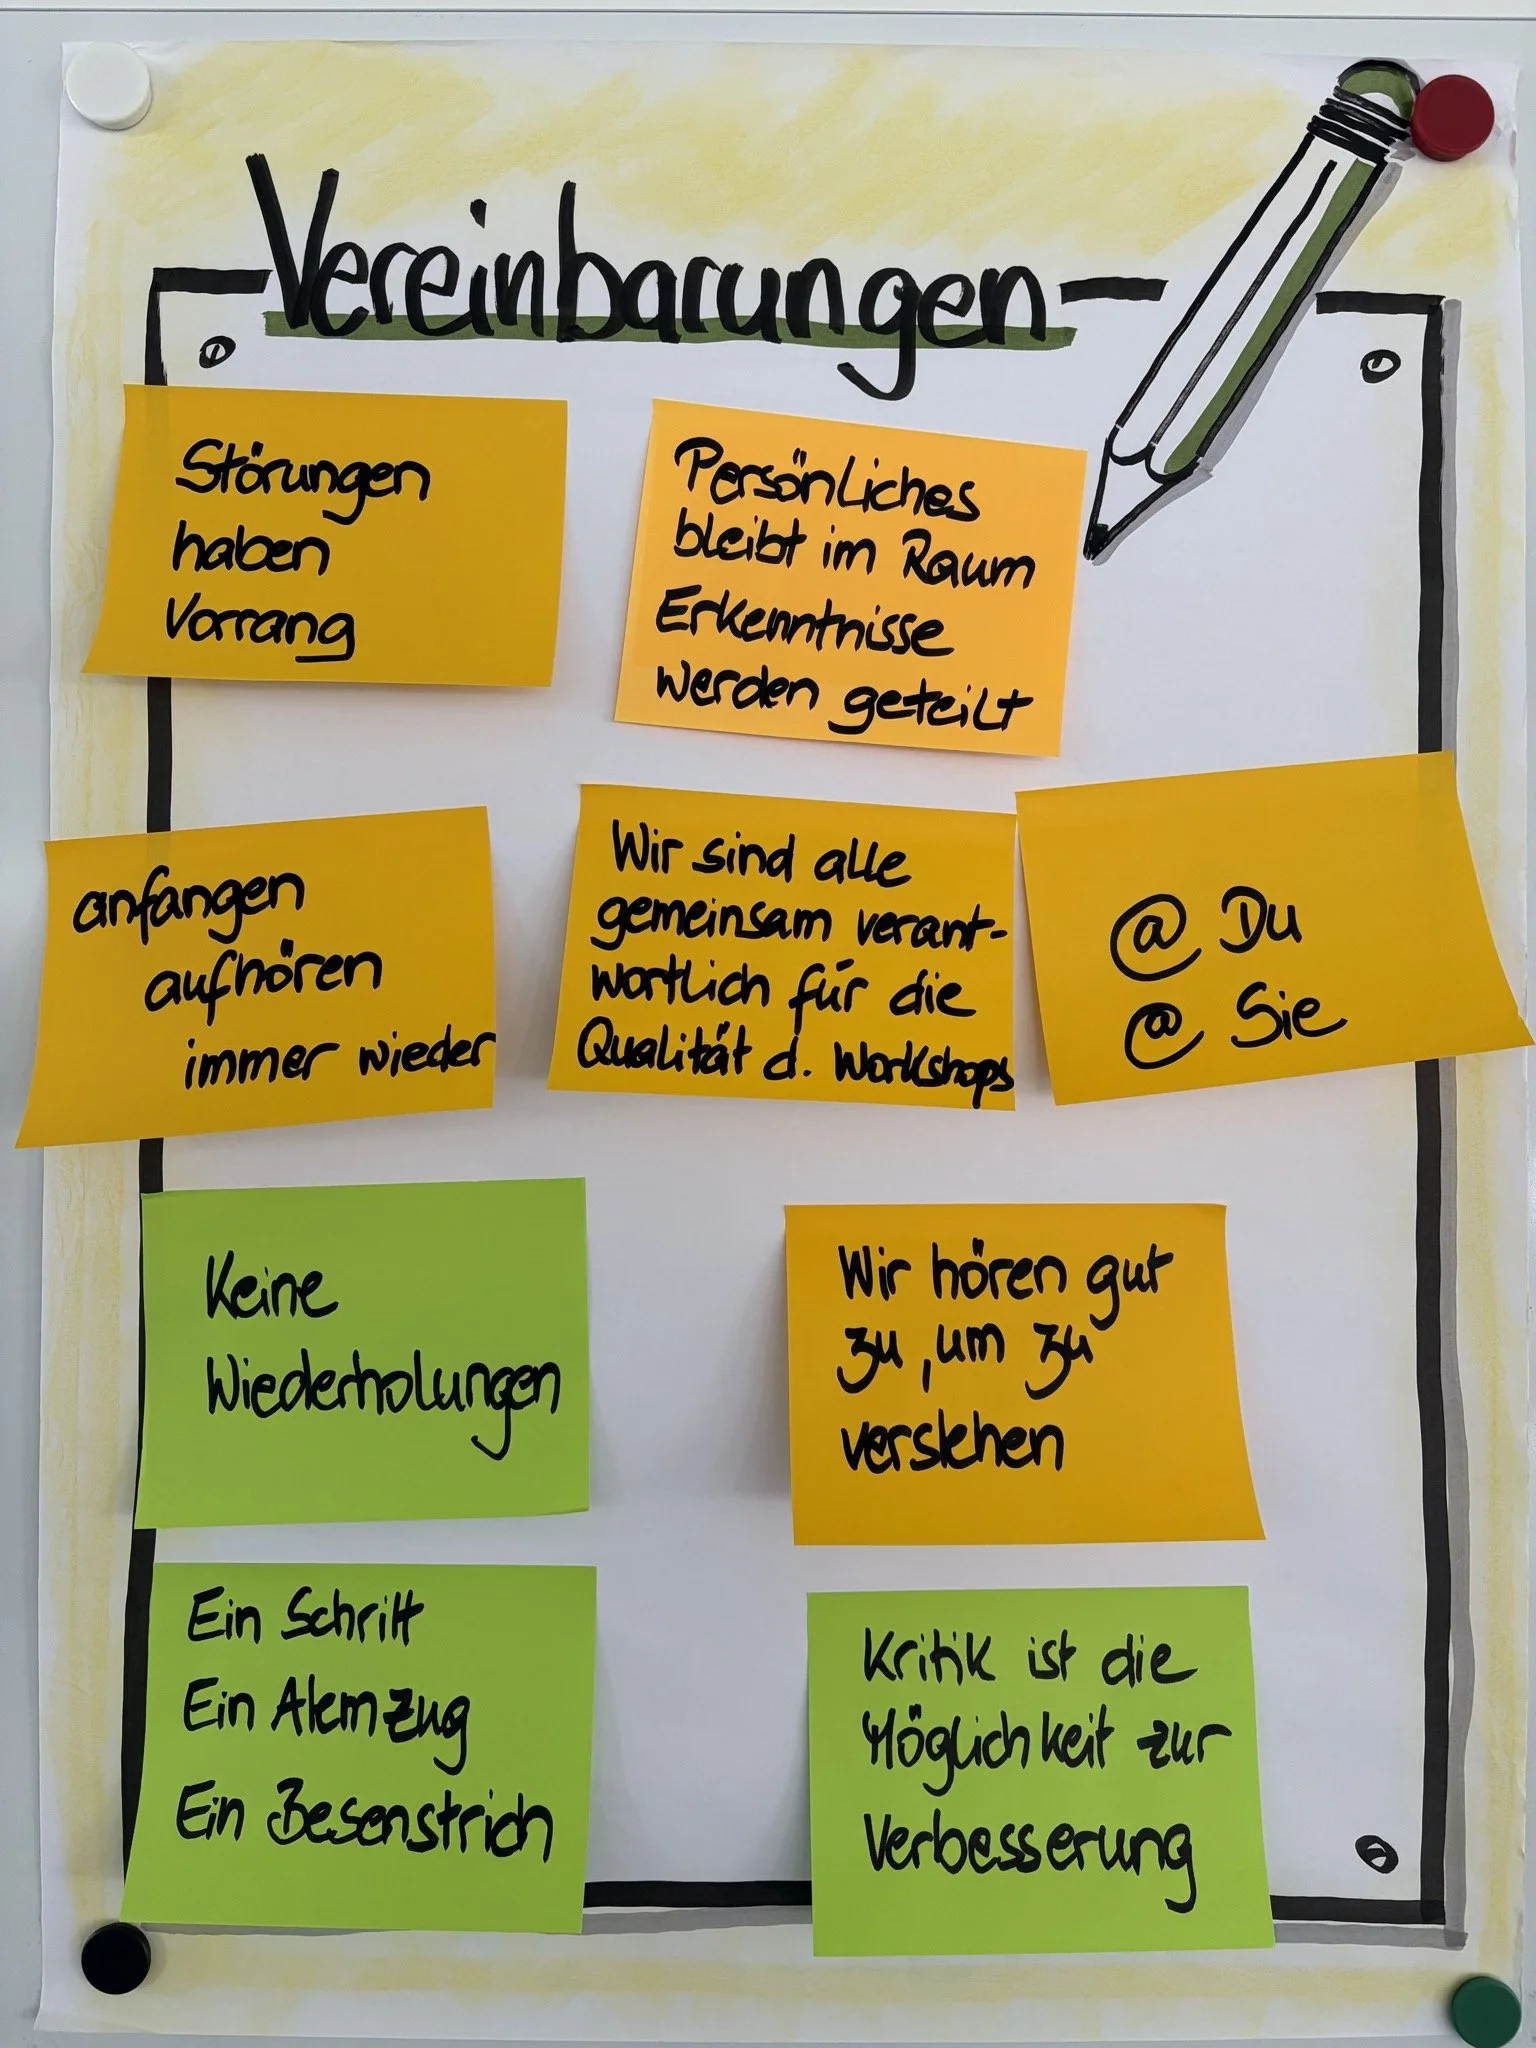 Vereinbarungen
Störungen
haben
Vorrang
Persönliches
bleibt im Raum
Erkenntnisse
werden geteilt
anfangen
aufhören
immer wieder
Wir sind alle
gemeinsam verant-
wortlich für die
Qualität d. Workshops
@ Du
@ Sie
Keine
Wiederholungen
Wir hören gut
zu, um zu
verstehen
Ein Schritt
Ein Atemzug
Ein Besenstrich
Kritik ist die
Möglichkeit zur
Verbesserung